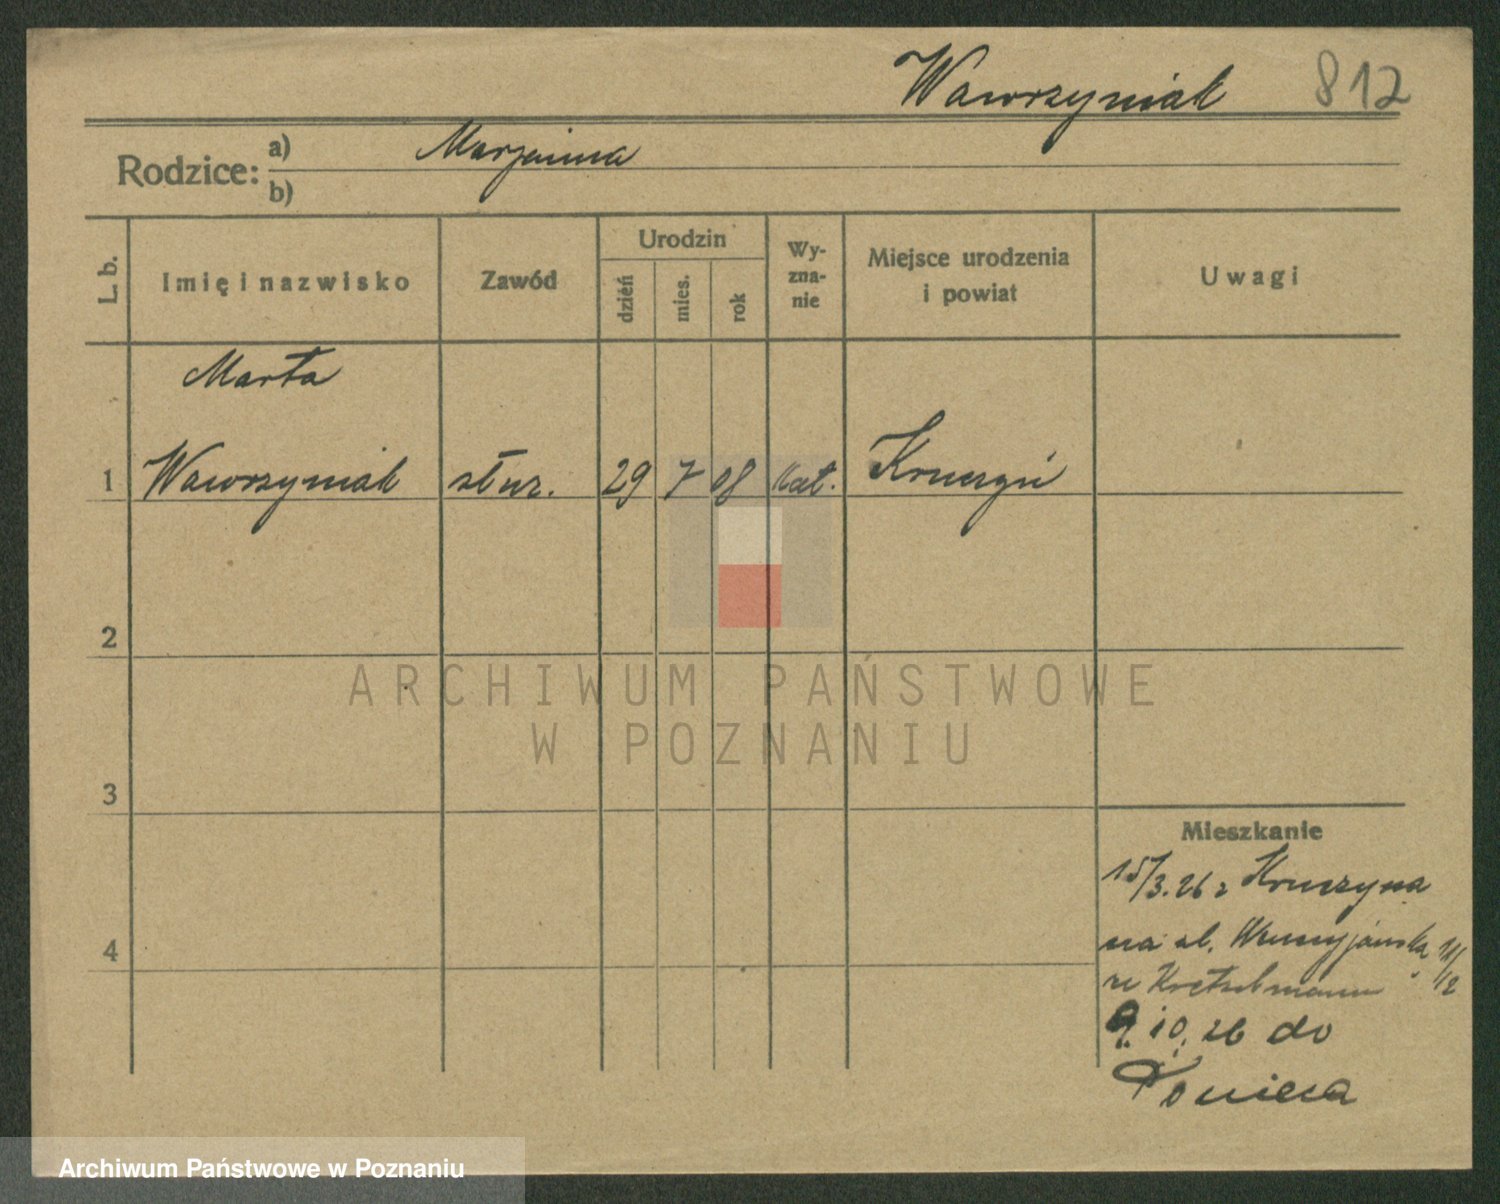 Wawrzyniak 812
Rodzice: a) Marjanna
b)
L. b. Imię i nazwisko Zawód Urodzin dzień mies. rok Wyznanie Miejsce urodzenia i powiat Uwagi
Marta
1 Wawrzyniak służ. 29 7 08 kat. Kruczyń
2
3
4
Mieszkanie
15/3.26 z Kruczyna
na ul. 11/12
ze
9.10.26 do
Ponieca
ARCHIWUM PAŃSTWOWE
W POZNANIU
Archiwum Państwowe w Poznaniu